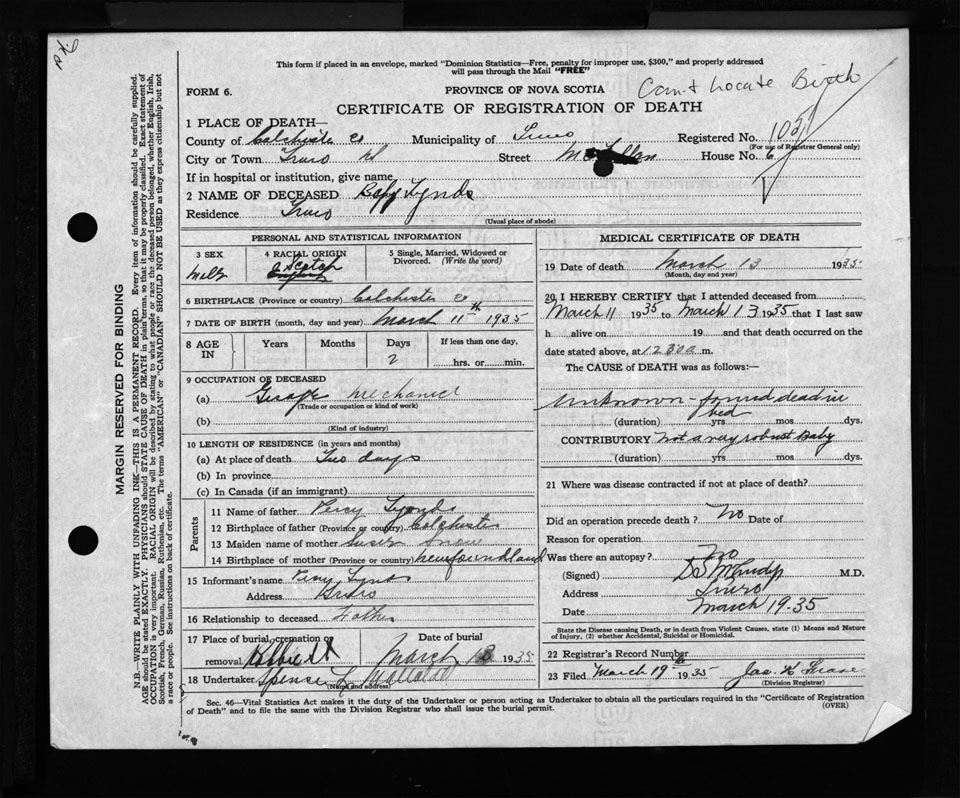 This form if placed in an envelope, marked "Dominion Statistics—Free, penalty for improper use, $300," and properly addressed
will pass through the Mail "FREE"
FORM 6.
PROVINCE OF NOVA SCOTIA
Can't Locate Birth
CERTIFICATE OF REGISTRATION OF DEATH
1 PLACE OF DEATH—
County of Colchester Co Municipality of Truro Registered No.
(For use of Registrar General only)
City or Town Truro NS Street House No. 6
If in hospital or institution, give name
2 NAME OF DECEASED Baby Lynds
Residence Truro
(Usual place of abode)
PERSONAL AND STATISTICAL INFORMATION
3 SEX
Male
4 RACIAL ORIGIN
Scotch
5 Single, Married, Widowed or
Divorced. (Write the word)
6 BIRTHPLACE (Province or country) Colchester Co
7 DATE OF BIRTH (month, day and year) March 11th 1935
8 AGE IN
Years Months Days If less than one day,
2 hrs. or min.
9 OCCUPATION OF DECEASED
(a) Garage Mechanic
(Trade or occupation or kind of work)
(b)
(Kind of industry)
10 LENGTH OF RESIDENCE (in years and months)
(a) At place of death Two days
(b) In province
(c) In Canada (if an immigrant)
Parents
11 Name of father Percy Lynds
12 Birthplace of father (Province or country) Colchester
13 Maiden name of mother Snow
14 Birthplace of mother (Province or country) Newfoundland
15 Informant's name Percy Lynds
Address Truro
16 Relationship to deceased Father
17 Place of burial, cremation or
removal
Date of burial
March 13 1935
18 Undertaker Spence
(Name and address)
MEDICAL CERTIFICATE OF DEATH
19 Date of death March 13 1935
(Month, day and year)
20 I HEREBY CERTIFY that I attended deceased from
March 11 1935 to March 13 1935 that I last saw
h alive on 19 and that death occurred on the
date stated above, at 12 30 a m.
The CAUSE of DEATH was as follows:—
Unknown - found dead in
bed
(duration) yrs mos dys.
CONTRIBUTORY Not a very robust Baby
(duration) yrs mos dys.
21 Where was disease contracted if not at place of death?
Did an operation precede death ? No Date of
Reason for operation
Was there an autopsy? No
(Signed) M.D.
Address Truro
Date March 19 35
State the Disease causing Death, or in death from Violent Causes, state (1) Means and Nature
of Injury, (2) whether Accidental, Suicidal or Homicidal.
22 Registrar's Record Number
23 Filed March 19th 1935
(Division Registrar)
Sec. 46—Vital Statistics Act makes it the duty of the Undertaker or person acting as Undertaker to obtain all the particulars required in the "Certificate of Registration
of Death" and to file the same with the Division Registrar who shall issue the burial permit.
(OVER)
MARGIN RESERVED FOR BINDING
N.B.—WRITE PLAINLY WITH UNFADING INK—THIS IS A PERMANENT RECORD. Every item of information should be carefully supplied.
AGE should be stated EXACTLY. PHYSICIANS should STATE CAUSE OF DEATH in plain terms, so that it may be properly classified. Exact statement of
OCCUPATION is very important. RACIAL ORIGIN will be described by stating to what people or race the deceased person belonged, whether English, Irish,
Scottish, French, German, Russian, Ruthenian, etc. The terms "AMERICAN" or "CANADIAN" SHOULD NOT BE USED as they express citizenship but not
a race or people. See instructions on back of certificate.